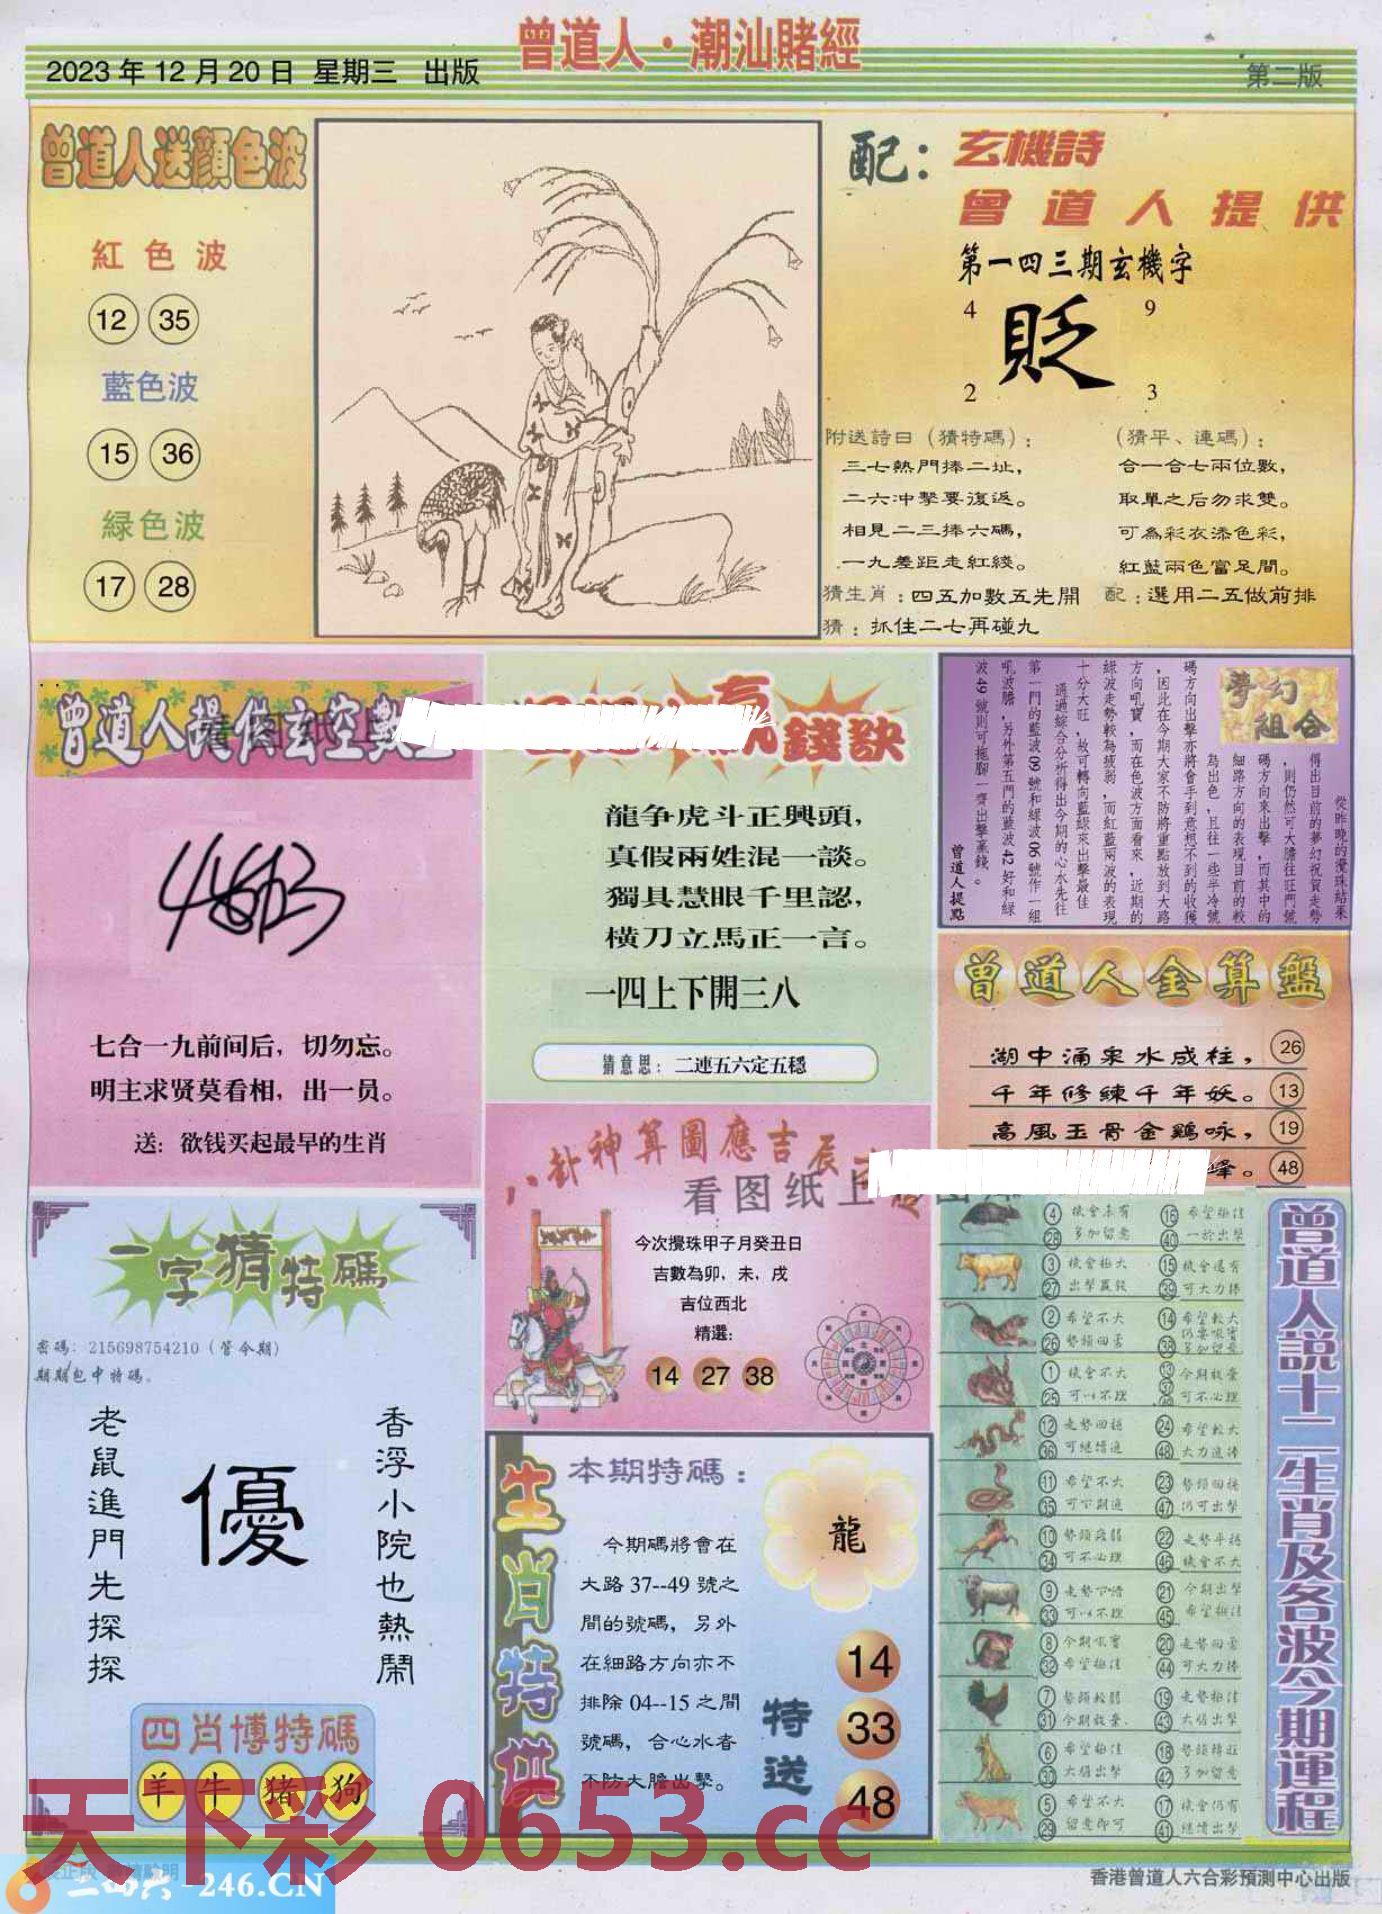 曾道人·潮汕賭經
2023年12月20日 星期三 出版
第二版
曾道人送顔色波
紅色波
12 35
藍色波
15 36
緑色波
17 28
配：玄機詩
曾道人提供
第一四三期玄機字
4 9
貶
2 3
附送詩曰（猜特碼）：
三七熱門捧二址，
二六冲擊要復返。
相見二三捧六碼，
一九差距走紅綫。
（猜平、連碼）：
合一合七兩位數，
取單之后勿求雙。
可為彩衣添色彩，
紅藍兩色富足間。
猜生肖：四五加數五先開 配：選用二五做前排
猜：抓住二七再碰九
曾道人提供玄空數
七合一九前间后，切勿忘。
明主求贤莫看相，出一员。
送：欲钱买起最早的生肖
錢訣
龍争虎斗正興頭，
真假兩姓混一談。
獨具慧眼千里認，
橫刀立馬正一言。
一四上下開三八
猜意思：二連五六定五穩
夢幻組合
從昨晚的攪珠結果
得出目前的夢幻祝賀走勢
，則仍然可大膽往旺門號
碼方向來出擊，而其中的
細路方向的表現目前的較
為出色，且往一些半冷號
碼方向出擊亦將會手到意想不到的收獲
，因此在今期大家不防將重點放到大路
方向吼寶，而在色波方面看來，近期的
緑波走勢較為疲弱，而紅藍兩波的表現
十分大旺，故可轉向藍緑來出擊最佳
通過綜合分析得出今期的心水先往
第一門的藍波09號和緑波06號作一組
吼波膽，另外第五門的藍波42好和緑
波49號則可拖脚一齊出擊贏錢。
曾道人提點
曾道人金算盤
湖中涌泉水成柱， 26
千年修練千年妖。 13
高風玉骨金鷄咏， 19
峰。 48
八卦神算圖應吉辰
看图纸上
今次攪珠甲子月癸丑日
吉數為卯，未，戌
吉位西北
精選：
14 27 38
一字猜特碼
密碼：215698754210（管今期）
期期包中特碼。
香浮小院也熱鬧
優
老鼠進門先探探
四肖博特碼
羊 牛 猪 狗
生肖特供
本期特碼：
龍
今期碼將會在
大路37--49號之
間的號碼，另外
在細路方向亦不
排除04--15之間
號碼，合心水者
不防大膽出擊。
特送
14
33
48
曾道人説十二生肖及各波今期運程
4 28 機會未有 多加留意 16 40 希望極佳 一於出擊
3 27 機會極大 出擊贏錢 15 39 機會還有 可大力捧
2 26 希望不大 勢頭回落 14 38 希望較大
1 25 機會不大 可以不理 13 37 49 今期放棄 可不必理
12 36 走勢回穩 可繼續進 24 48 希望較大 大力進捧
11 35 希望不大 23 47 勢頭回穩 仍可出擊
10 34 勢頭疲弱 可不必理 22 46 走勢平穩 機會不大
9 33 可以不理 21 45 今期出擊 希望極佳
8 32 今期吼寶 希望極佳 20 44 走勢回落 可大力捧
7 31 勢頭較弱 今期放棄 19 43 走勢極佳 大膽出擊
6 30 希望極佳 大膽出擊 18 42 勢頭轉旺 多加留意
5 29 希望不大 留意即可 17 41 機會仍有 繼續出擊
天下彩 0653.cc
二四六-246.CN
香港曾道人六合彩預測中心出版